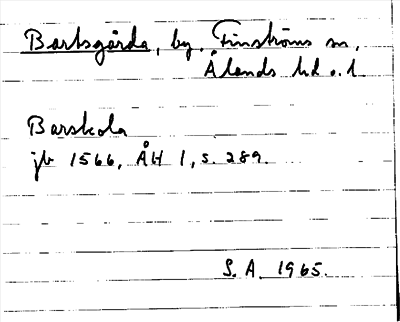 Bartsgårda, by, Finströms sn,
Ålands hd o. l.
Barskola
jb 1566, ÅH 1, s. 289.
S. A. 1965.